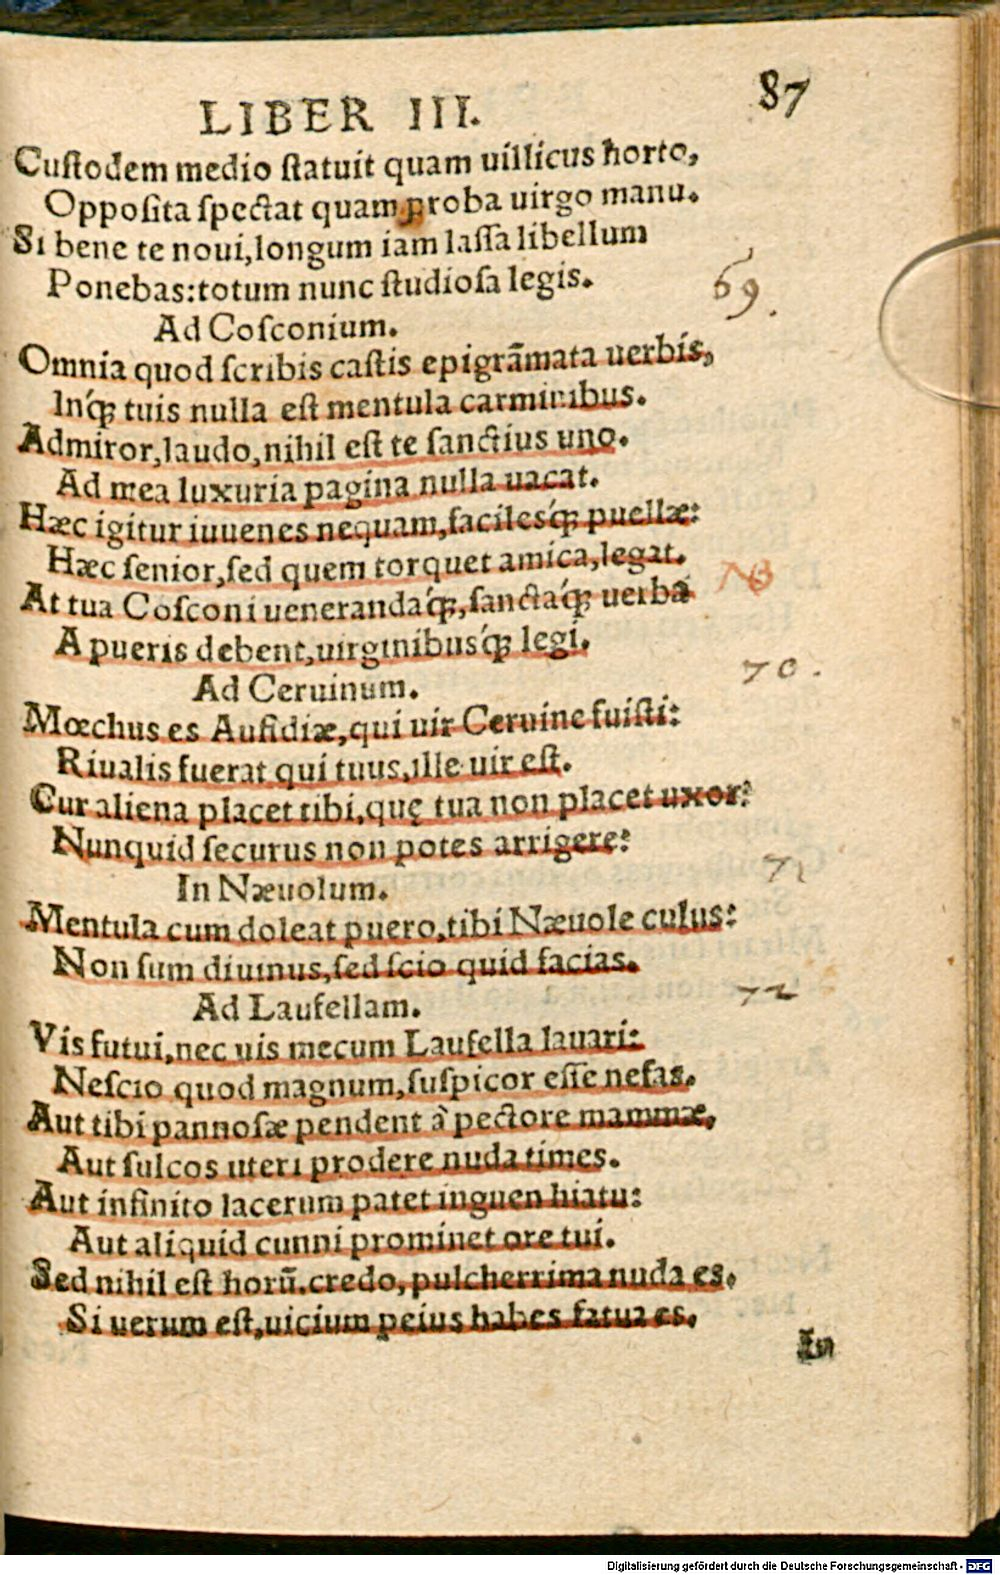 LIBER III. 87
Cuſtodem medio ſtatuit quam uillicus horto,
Oppoſita ſpectat quam proba uirgo manu.
Si bene te noui, longum iam laſſa libellum
Ponebas: totum nunc ſtudioſa legis.
69.
Ad Coſconium.
Omnia quod ſcribis caſtis epigrāmata uerbis,
Inq́ꝫ tuis nulla eſt mentula carminibus.
Admiror, laudo, nihil eſt te ſanctius uno.
Ad mea luxuria pagina nulla uacat.
Hæc igitur iuuenes nequam, facilesq́ꝫ puellæ:
Hæc ſenior, ſed quem torquet amica, legat.
NB
At tua Coſconi uenerandaq́ꝫ, ſanctaq́ꝫ uerba
A pueris debent, uirginibusq́ꝫ legi.
70.
Ad Ceruinum.
Mœchus es Aufidiæ, qui uir Ceruine fuiſti:
Riualis fuerat qui tuus, ille uir eſt.
Cur aliena placet tibi, quę tua non placet uxor?
Nunquid ſecurus non potes arrigere?
71
In Næuolum.
Mentula cum doleat puero, tibi Næuole culus:
Non ſum diuinus, ſed ſcio quid facias.
72
Ad Laufellam.
Vis futui, nec uis mecum Laufella lauari:
Neſcio quod magnum, ſuſpicor eſſe nefas.
Aut tibi pannoſæ pendent à pectore mammæ,
Aut ſulcos uteri prodere nuda times.
Aut infinito lacerum patet inguen hiatu:
Aut aliquid cunni prominet ore tui.
Sed nihil eſt horū. credo, pulcherrima nuda es.
Si uerum eſt, uicium peius habes fatua es.
In
Digitalisierung gefördert durch die Deutsche Forschungsgemeinschaft - DFG